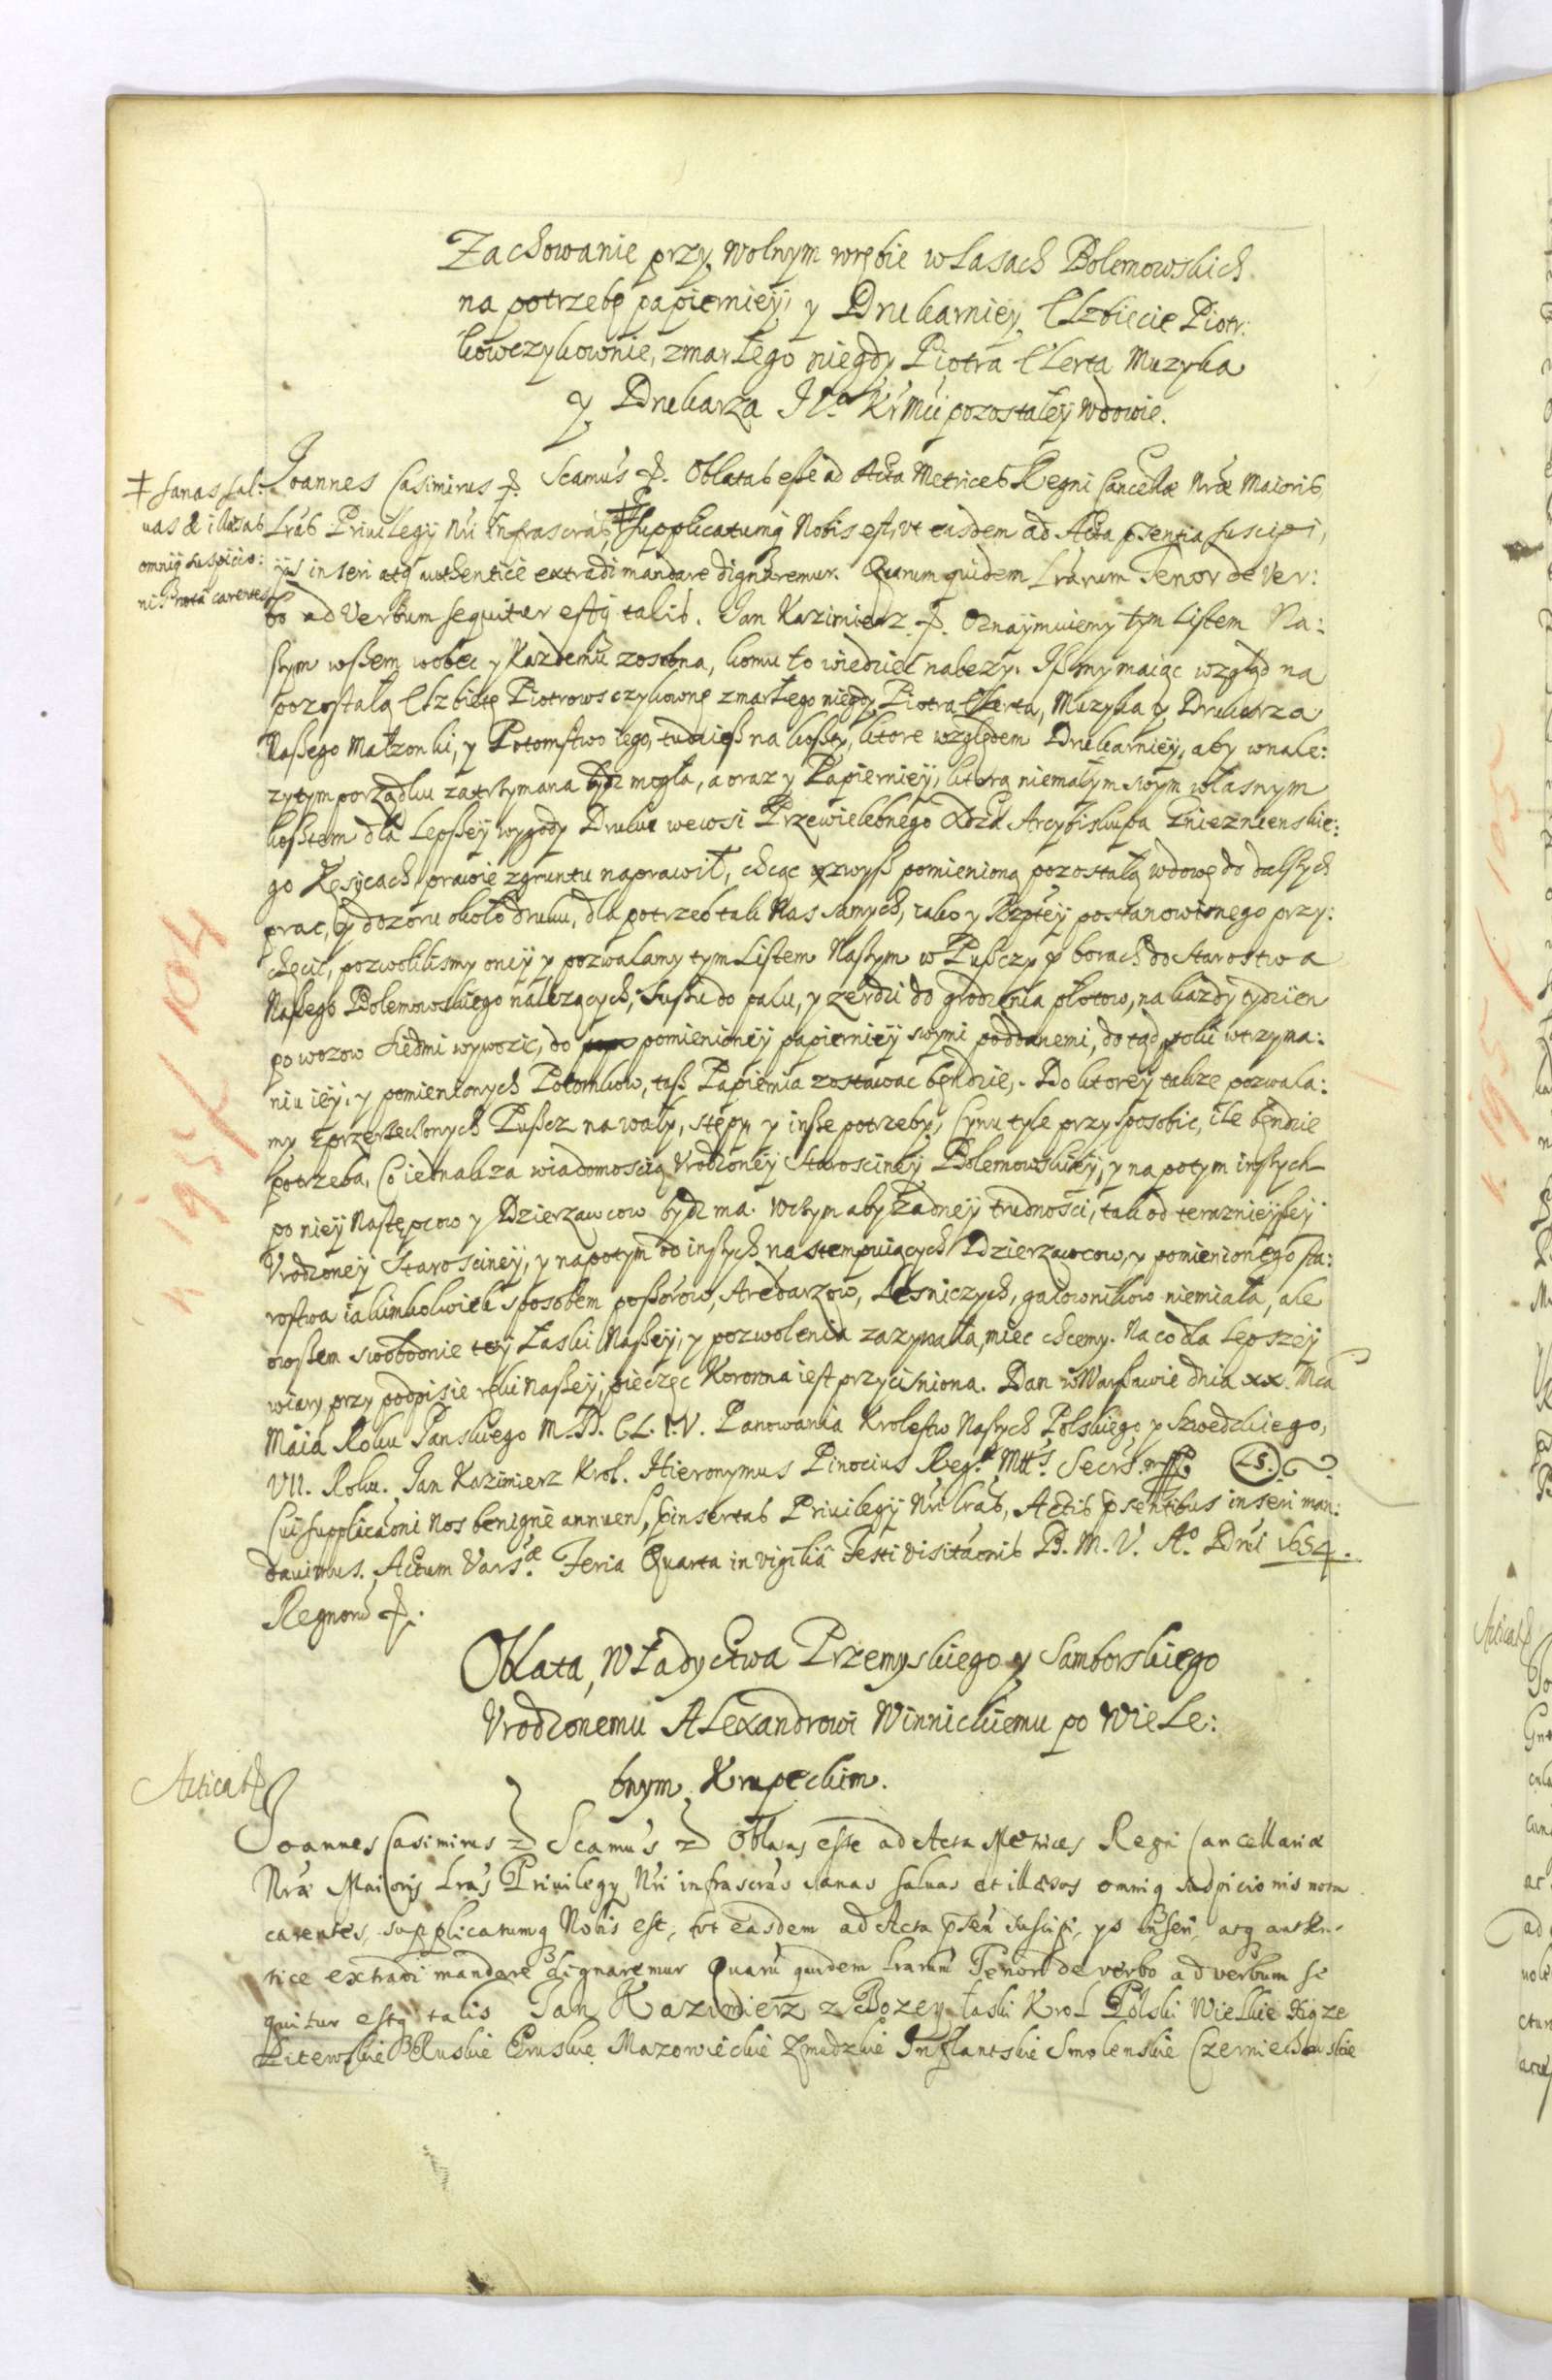 Zachowanie przy wolnym wrębie w Lasach Bolemowskich
na potrzebę papierniej, y Drukarniey Elzbiecie Piotr:
kowczykownie, zmarłego niegdy Piotra Elerta Muzyka
y Drukarza J K Mci pozostałey wdowie.
Joannes Casimirus Scamus Oblatas esse ad Acta Metrices Regni Cancellæ Nræ Maioris
‡ sanas sal:
uas & illæsas
omniq suspicio:
ni nota carentes
Lras Privilegij Nri infrascras, ‡ supplicatumq Nobis est, vt easdem ad Acta psentia suscipi,
ijs inseri atq authentice extradi mandare dignaremur. Quarum quidem Lrarum Tenor de Ver:
bo ad Verbum sequitur estq talis. Jan Kazimierz Oznaymuiemy tym Listem Na:
szym wszem wobec y Kazdemu zosobna, komu to wiedziec nalezy. Isz my maiąc wzgląd na
pozostałą Elzbietę Piotrowsczykownę zmarłego niegdy Piotra Elerta, Muzyka y Drukarza
Naszego Małzonki, y Potomstwo iego, tudziesz na koszty, ktore względem Drukarniey, aby wnale:
zytym porządku zatrzymana bydz mogła, a oraz y Papierniey, ktorą niemałym swym własnym
kosztem dla Lepszey wygody Druku wewsi Przewielebnego Xdza Arcybiskupa Gnieznienskie:
go Kęsycach prawie zgruntu naprawił, chcąc zwysz pomienioną pozostałą wdowę do dalszych
prac, y dozoru około druku, dla potrzeb tak Nas samych, iako y Rzptey postanowionego przy:
chęcic, pozwolilismy oney y pozwalamy tym Listem Naszym w Puszczy y borach do Starostwa
Naszego Bolemowskiego nalezących, Suszu do palu, y zerdzi do grodzenia płotow, na kazdy tydzien
po wozow siedmi wywozic, do pomienioney papierniey swymi poddanemi, dotąd poki wtrzyma:
niu iey, y pomienionych Potomkow, tasz Papiernia zostawac będzie. Do ktorey takze pozwala:
my zprzerzeczonych Puszcz na wały, stępy y insze potrzeby, Cynu tyle przysposobic, ile będzie
potrzeba, Co iednak za wiadomoscią Vrodzoney Starosciney Bolemowskiey, y na potym inszych
po niey Następcow y Dzierzawcow bydz ma. Wczym aby zadney trudnosci, tak od teraznieyszey
Vrodzoney Starosciney, y napotym od inszych nastempuiących Dzierzawcow, y pomienionego sta:
rostwa iakimkolwiek sposobem poborow, Arędarzow, Lesniczych, gaiownikow niemiała, ale
owszem swobodnie tey Łaski Naszey, y pozwolenia zazywała, miec chcemy. Na co dla Lepszey
wiary przy podpisie ręki Naszey, pieczęc Koronna iest przycisniona. Dan w Warszawie dnia xx. Mca
Maia Roku Panskiego M.D.C.L.I.V. Panowania Krolestw Naszych Polskiego y Szwedzkiego,
VII. Roku. Jan Kazimierz Krol. Hieronymus Pinocius Reg. Mtt. Secrs. mpp L.S.
Cui supplicaoni Nos benigne annuen, pinsertas Privilegij Nri lras, Actis psentibus inseri man:
dauimus. Actum Vars. Feria Quarta in vigilia Festi Visitaonis B. M. V. Ao Dni 1654.
Regnoru
Oblata, Władyctwa Przemyskiego y Samborskiego
Vrodzonemu Alexandrowi Winnickiemu po Wiele:
bnym Krupeckim.
Acticat
Joannes Casimirus Scamus Oblatas esse ad Acta Metrices Regni Cancellariæ
Nræ Maioris Lras Privilegij Nri infrascras sanas saluas et illæsas omniq suspicionis nota
carentes, supplicatumq Nobis est, vt easdem ad Acta psen suscipi, ijs inseri, atq authen:
tice extradi mandare dignaremur Quaru quidem Lraru Tenor de verbo ad verbum se
quitur estq talis Jan Kazimierz z Bozey łaski Krol Polski Wielkie Xiąze
Litewskie Ruskie Pruskie Mazowieckie Zmudzkie Inflantskie Smolenskie Czerniechowskie